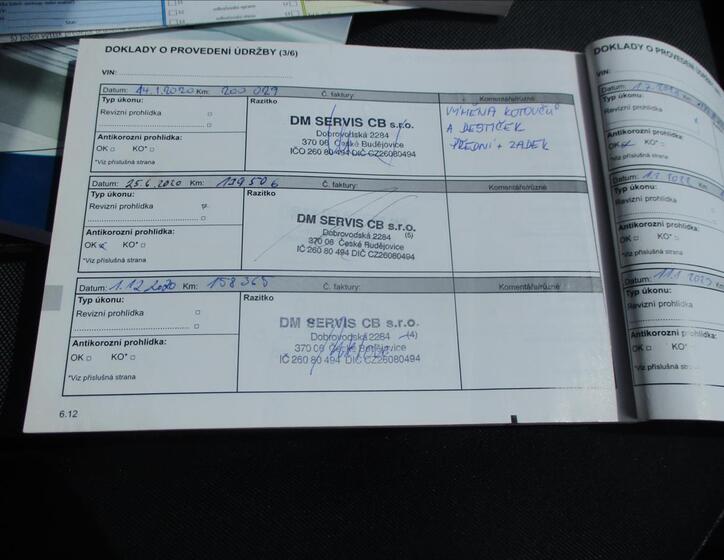 DOKLADY O PROVEDENÍ ÚDRŽBY (3/6)
VIN:
Datum: 14.1.2020 Km: 200 029 Č. faktury: Komentáře/různé
Typ úkonu: Razítko
Revizní prohlídka
Antikorozní prohlídka:
OK KO*
*Viz příslušná strana
DM SERVIS CB s.r.o.
Dobrovodská 2284
370 06 České Budějovice
IČO 260 80 494 DIČ CZ26080494
VÝMĚNA KOTOUČŮ
A DESTIČEK
PŘEDNÍ + ZADEK
Datum: 25.6.2020 Km: Č. faktury: Komentáře/různé
Typ úkonu: Razítko
Revizní prohlídka
Antikorozní prohlídka:
OK KO*
*Viz příslušná strana
DM SERVIS CB s.r.o.
Dobrovodská 2284 (5)
370 06 České Budějovice
IČ 260 80 494 DIČ CZ26080494
Datum: 1.12.2020 Km: 158365 Č. faktury: Komentáře/různé
Typ úkonu: Razítko
Revizní prohlídka
Antikorozní prohlídka:
OK KO*
*Viz příslušná strana
DM SERVIS CB s.r.o.
Dobrovodská 2284 (4)
370 06 České Budějovice
IČ 260 80 494 DIČ CZ26080494
6.12
DOKLADY O PROVEDENÍ
VIN:
Datum:
Typ úkonu:
Revizní prohlídka
Antikorozní prohlídka:
OK KO*
*Viz příslušná strana
Datum:
Typ úkonu:
Revizní prohlídka
Antikorozní prohlídka:
OK KO*
*Viz příslušná strana
Datum:
Typ úkonu:
Revizní prohlídka
Antikorozní prohlídka:
OK KO*
*Viz příslušná strana